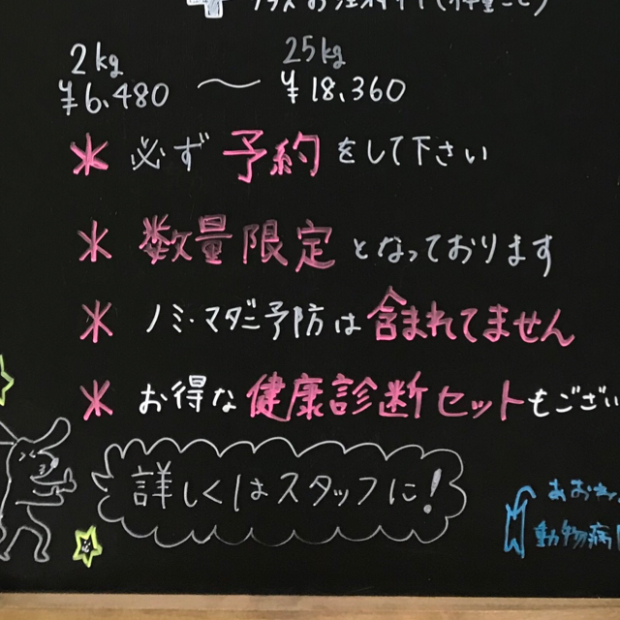 2kg 25kg
¥6,480 〜 ¥18,360
＊必ず予約をして下さい
＊数量限定となっております
＊ノミ・マダニ予防は含まれてません
＊お得な健康診断セットもござい
詳しくはスタッフに！
動物病